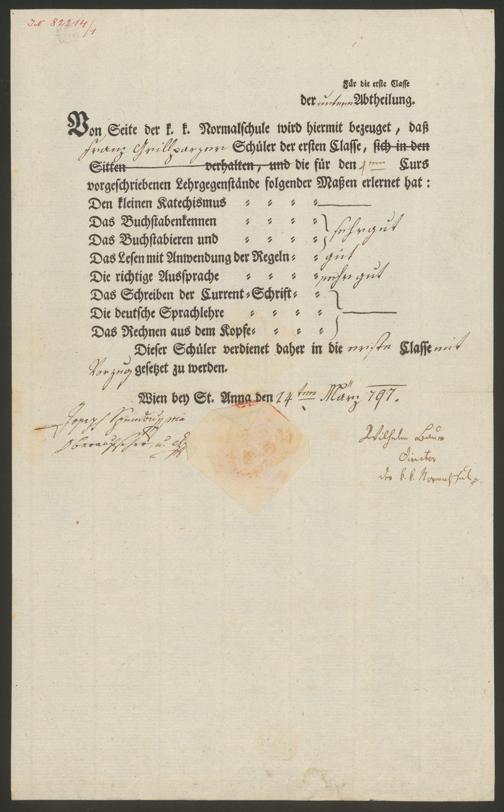 JN 82214/1
Für die erste Classe
der untern Abtheilung.
Von Seite der k. k. Normalschule wird hiermit bezeuget, daß
Franz Grillparzer Schüler der ersten Classe, sich in den
Sitten verhalten, und die für den 1ten Curs
vorgeschriebenen Lehrgegenstände folgender Maßen erlernet hat :
Den kleinen Katechismus " " " " ———
Das Buchstabenkennen " " " "
Das Buchstabieren und " " " " sehr gut
Das Lesen mit Anwendung der Regeln " " gut
Die richtige Aussprache " " " " sehr gut
Das Schreiben der Current-Schrift " "
Die deutsche Sprachlehre " " " " ———
Das Rechnen aus dem Kopfe " " " "
Dieser Schüler verdienet daher in die erste Classe mit
Vorzug gesetzet zu werden.
Wien bey St. Anna den 14ten März 797.
Joseph Spendou
Oberaufseher
Wilhelm Bauer
Director
der k. k. Normalschule